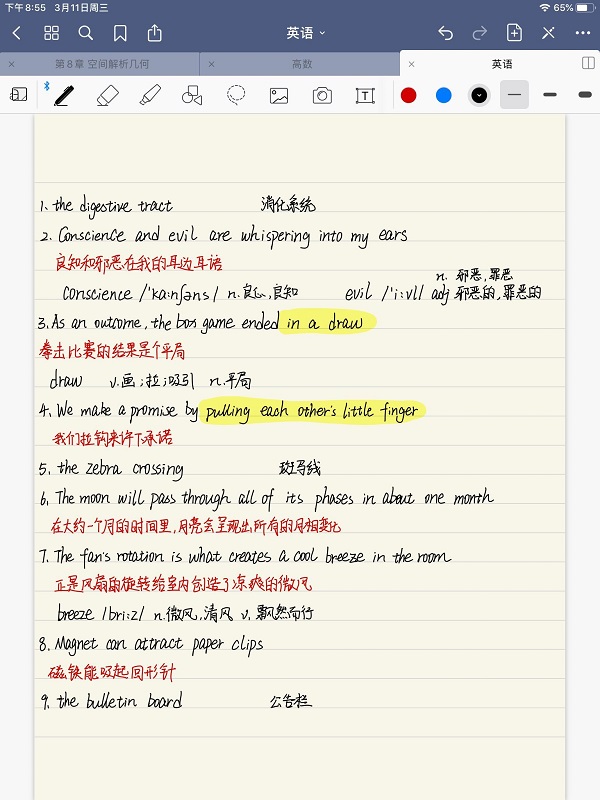 下午8:55 3月11日周三 65%
英语
第8章 空间解析几何 高数 英语
T
1. the digestive tract 消化系统
2. Conscience and evil are whispering into my ears
良知和邪恶在我的耳边耳语
n. 邪恶,罪恶
conscience /'ka:nʃəns/ n.良心,良知 evil /'i:vl/ adj 邪恶的,罪恶的
3. As an outcome, the box game ended in a draw
拳击比赛的结果是个平局
draw v.画;拉;吸引 n.平局
4. We make a promise by pulling each other's little finger
我们拉钩来许下承诺
5. the zebra crossing 斑马线
6. The moon will pass through all of its phases in about one month
在大约一个月的时间里,月亮会呈现出所有的月相变化
7. The fan's rotation is what creates a cool breeze in the room
正是风扇的旋转给室内创造了凉爽的微风
breeze /bri:z/ n.微风,清风 v.飘然而行
8. Magnet can attract paper clips
磁铁能吸起回形针
9. the bulletin board 公告栏